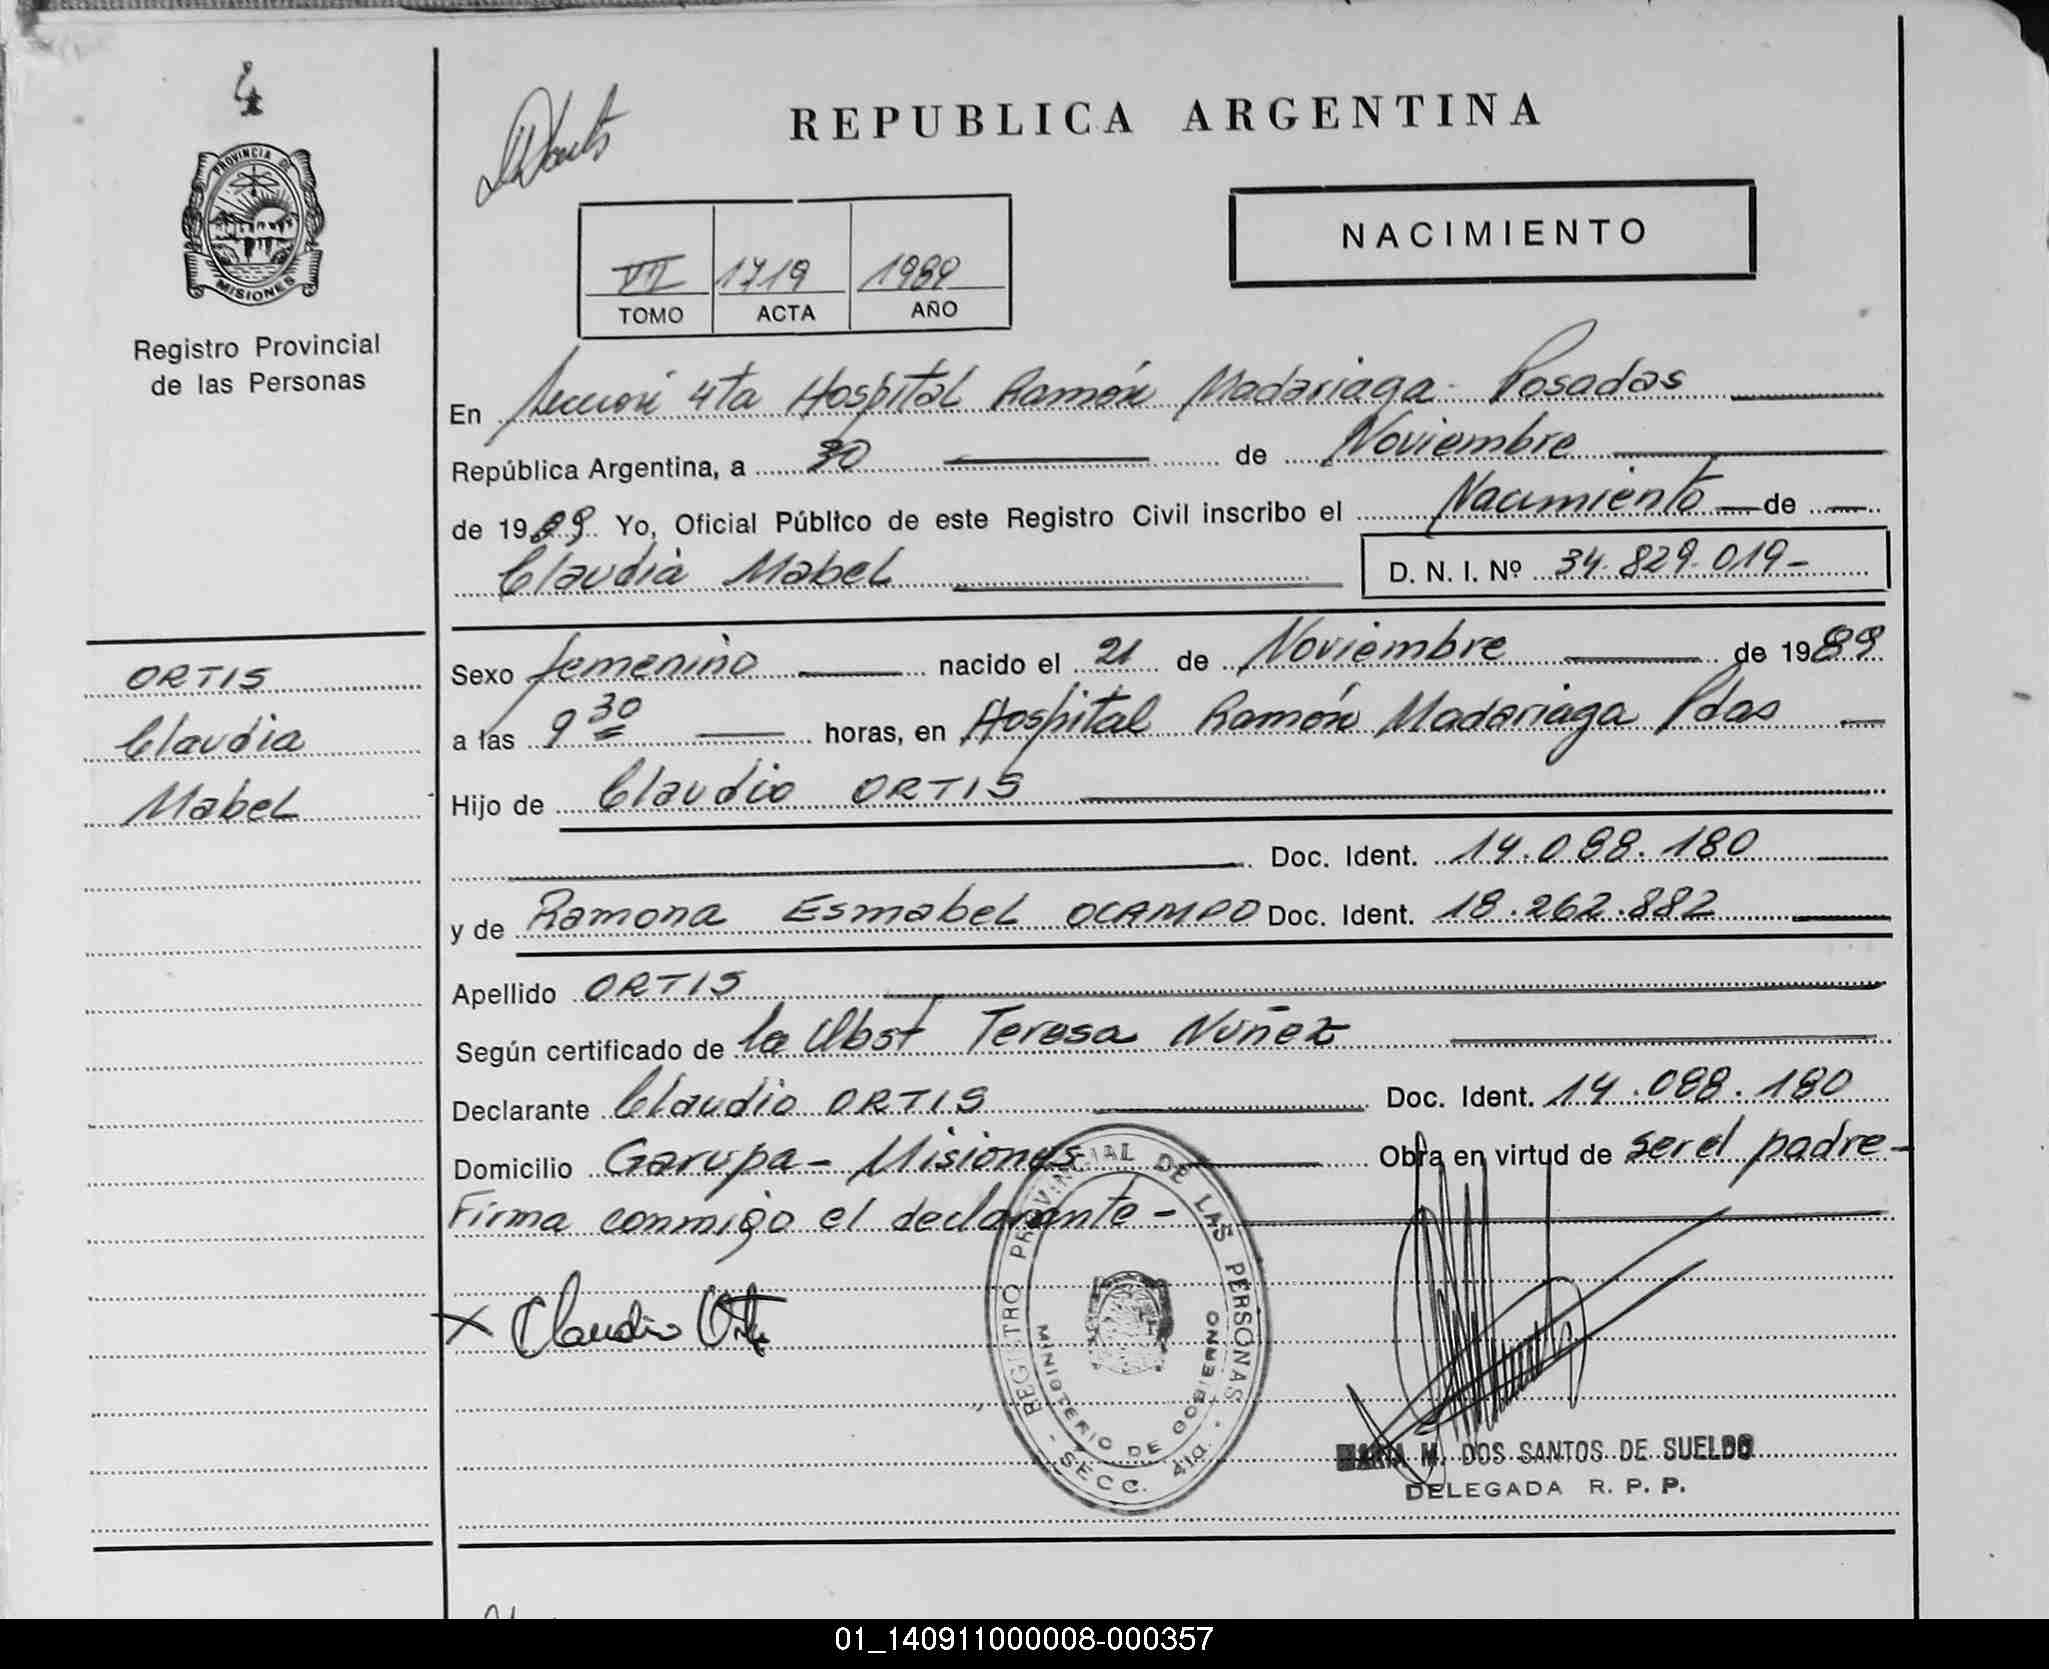 4
PROVINCIA DE
MISIONES
Registro Provincial
de las Personas
ORTIS
Claudia
Mabel
REPUBLICA ARGENTINA
NACIMIENTO
VII 1719 1989
TOMO ACTA AÑO
En Sección 4ta Hospital Ramón Madariaga - Posadas
República Argentina, a 30 de Noviembre
de 1989. Yo, Oficial Público de este Registro Civil inscribo el Nacimiento de
Claudia Mabel D. N. I. Nº 34.829.019-
Sexo femenino nacido el 21 de Noviembre de 1989
a las 9 30 horas, en Hospital Ramón Madariaga Pdas
Hijo de Claudio ORTIS
Doc. Ident. 14.088.180
y de Ramona Esmabel OCAMPO Doc. Ident. 18.262.882
Apellido ORTIS
Según certificado de la Obst Teresa Nuñez
Declarante Claudio ORTIS Doc. Ident. 14.088.180
Domicilio Garupa - Misiones Obra en virtud de ser el padre-
Firma conmigo el declarante-
X Claudio
REGISTRO PROVINCIAL DE LAS PERSONAS
MINISTERIO DE GOBIERNO
- SECC. 4ta. -
MARIA M. DOS SANTOS DE SUELDO
DELEGADA R. P. P.
01_140911000008-000357